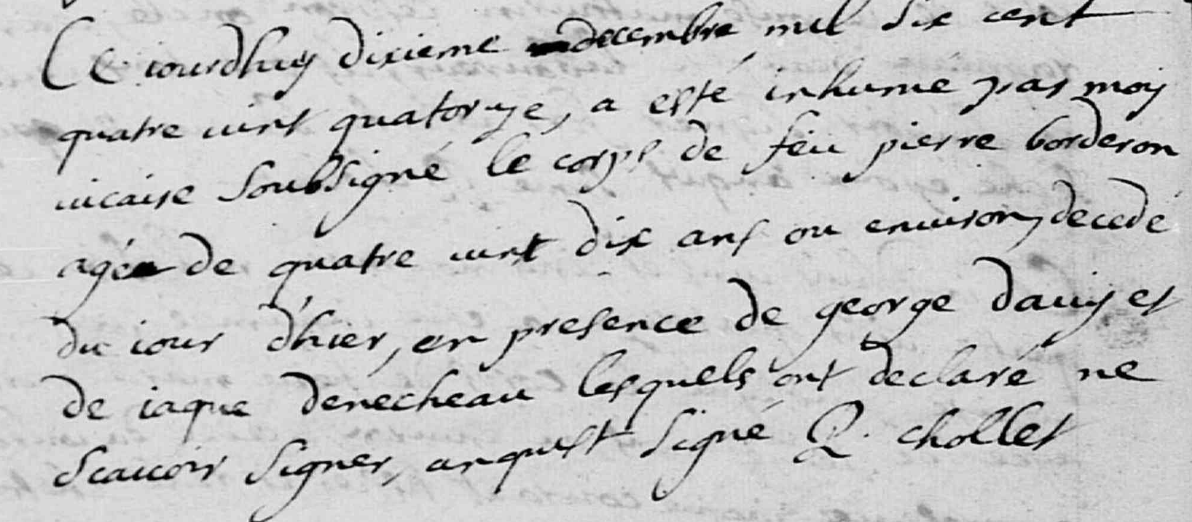 Ce iourdhuy dixieme decembre mil six cent
quatre vint quatorze, a esté inhumé par moy
vicaire soubsigné le corps de feu pierre borderon
agé de quatre vint dix ans ou environ, decedé
du iour d'hier, en presence de george davy et
de iaque denecheau lesquels ont declaré ne
scavoir signer, enquest signé chollet